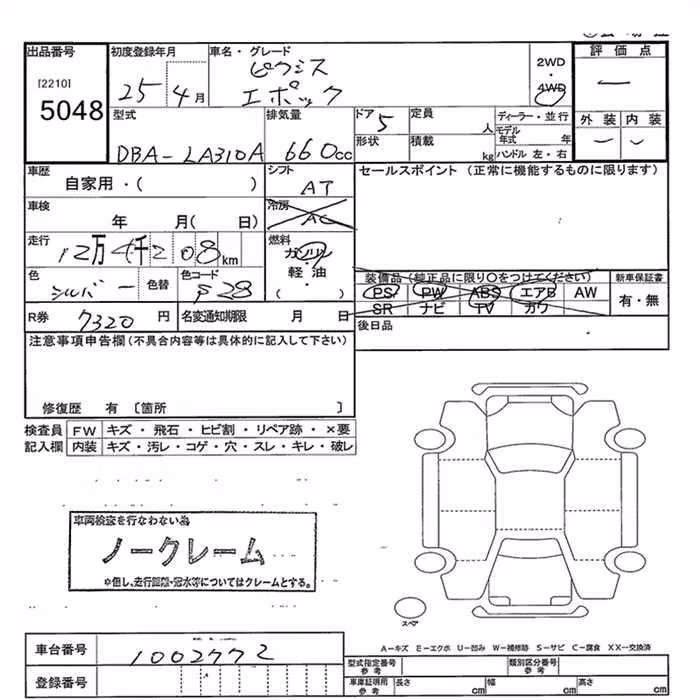 出品番号 初度登録年月 車名・グレード 2WD 評価点
[2210] ピクシス ・
5048 25 4月 エポック 4WD 一
型式 排気量 ドア 5 定員 人 ディーラー・並行 外装 内装
DBA-LA310A 660cc 形状 積載 kg モデル年式 年
ハンドル 左・右
車歴 シフト セールスポイント (正常に機能するものに限ります)
自家用・( ) AT
車検 冷房
年 月( 日) AC
走行 燃料
12万4千208km ガソリン
軽油
( ・ )
色 色替 色コード 装備品(純正品に限り〇をつけてください) 新車保証書
シルバー S28 PS PW ABS エアB AW 有・無
SR ナビ TV カワ
R券 7320円 名変通知期限 月 日 後日品
注意事項申告欄(不具合内容等は具体的に記入して下さい)
修復歴 有 〔箇所 〕
検査員 FW キズ・飛石・ヒビ割・リペア跡・×要
記入欄 内装 キズ・汚レ・コゲ・穴・スレ・キレ・破レ
車両検査を行なわない為
ノークレーム
※但し、走行距離・冠水等についてはクレームとする。
スペア
A-キズ E-エクボ U-凹み W-補修跡 S-サビ C-腐食 XX-交換済
車台番号 1002772 型式指定番号 参考 類別区分番号 参考
登録番号 車庫証明用 参考 長さ cm 幅 cm 高さ cm